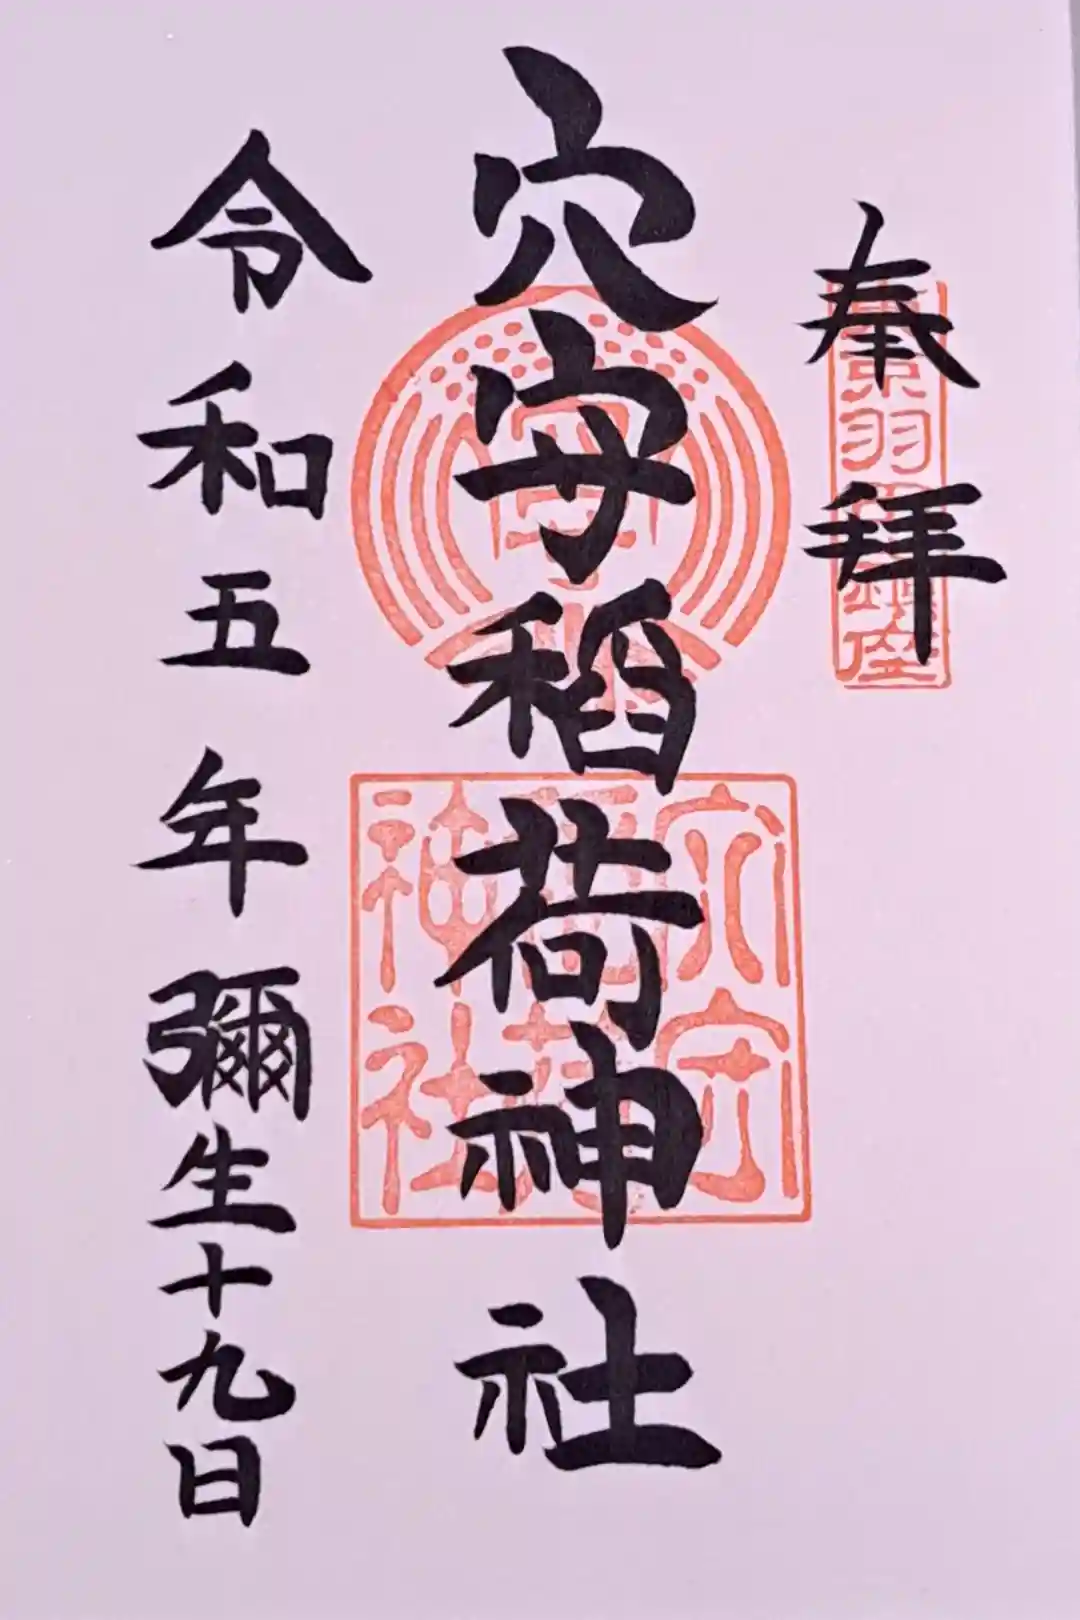 奉拜
東京羽田鎮座
穴守稲荷神社
穴守稲荷神社
令和五年彌生十九日